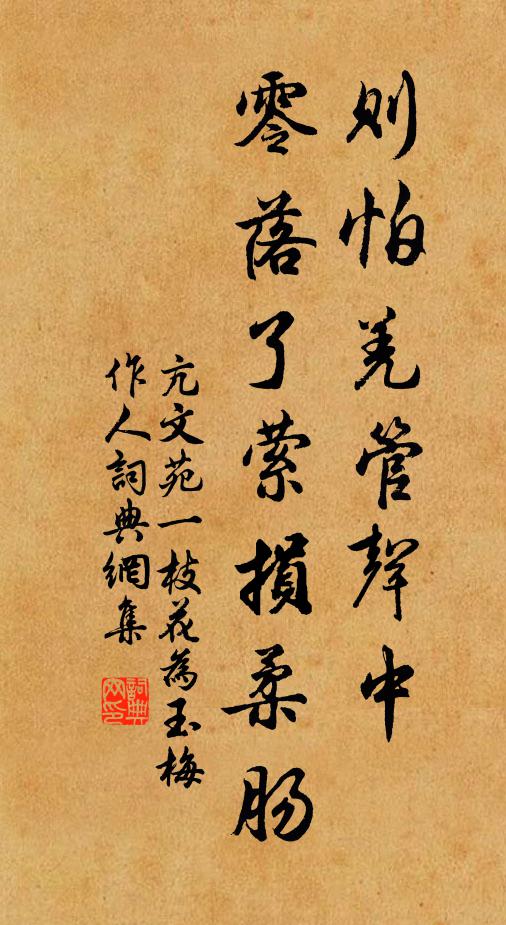 則怕羌管聲中
零落了縈損柔肠
亢文苑一枝花為玉梅
作人詞典網集
詞典
网印